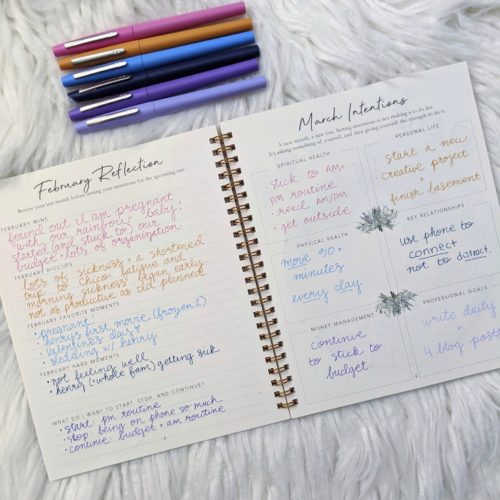 February Reflection
Review your last month before setting your intentions for the upcoming one.
FEBRUARY WINS
found out I am pregnant
with our rainbow baby!
started (and stuck to) our
budget • lots of organization
FEBRUARY HICCUPS
lots of sickness • a shortened
trip to Chico • fatigue and
morning sickness began early •
not as productive as I'd planned
FEBRUARY FAVORITE MOMENTS
• pregnant!
• henrys first movie (frozen 2)
• Valentine's day
• Sledding w/ henry
FEBRUARY HARD MOMENTS
• not feeling well
• henry (+ whole fam) getting sick
WHAT DO I WANT TO START, STOP, AND CONTINUE?
• start: pm routine
• stop: being on phone so much
• continue: budget + am routine
March Intentions
A new month, a new you. Setting intentions is not making a to do list.
It's asking something of yourself, and then giving yourself the strength to do it.
SPIRITUAL HEALTH
• stick to AM,
PM routine
• read AM/PM
• get outside
PERSONAL LIFE
start a new
creative project
+
finish basement
PHYSICAL HEALTH
move 30+
minutes
every day
KEY RELATIONSHIPS
use phone to
connect
not to distract
MONEY MANAGEMENT
continue
to stick to
budget
PROFESSIONAL GOALS
write daily
+
4 blog posts